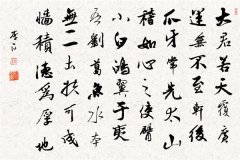 大君若天覆廣
運無不至軒后
爪牙常先太山
稽如心之使臂
小白鴻翼于夷
吾劉葛魚水本
無二土扶可成
牆積德為厚地